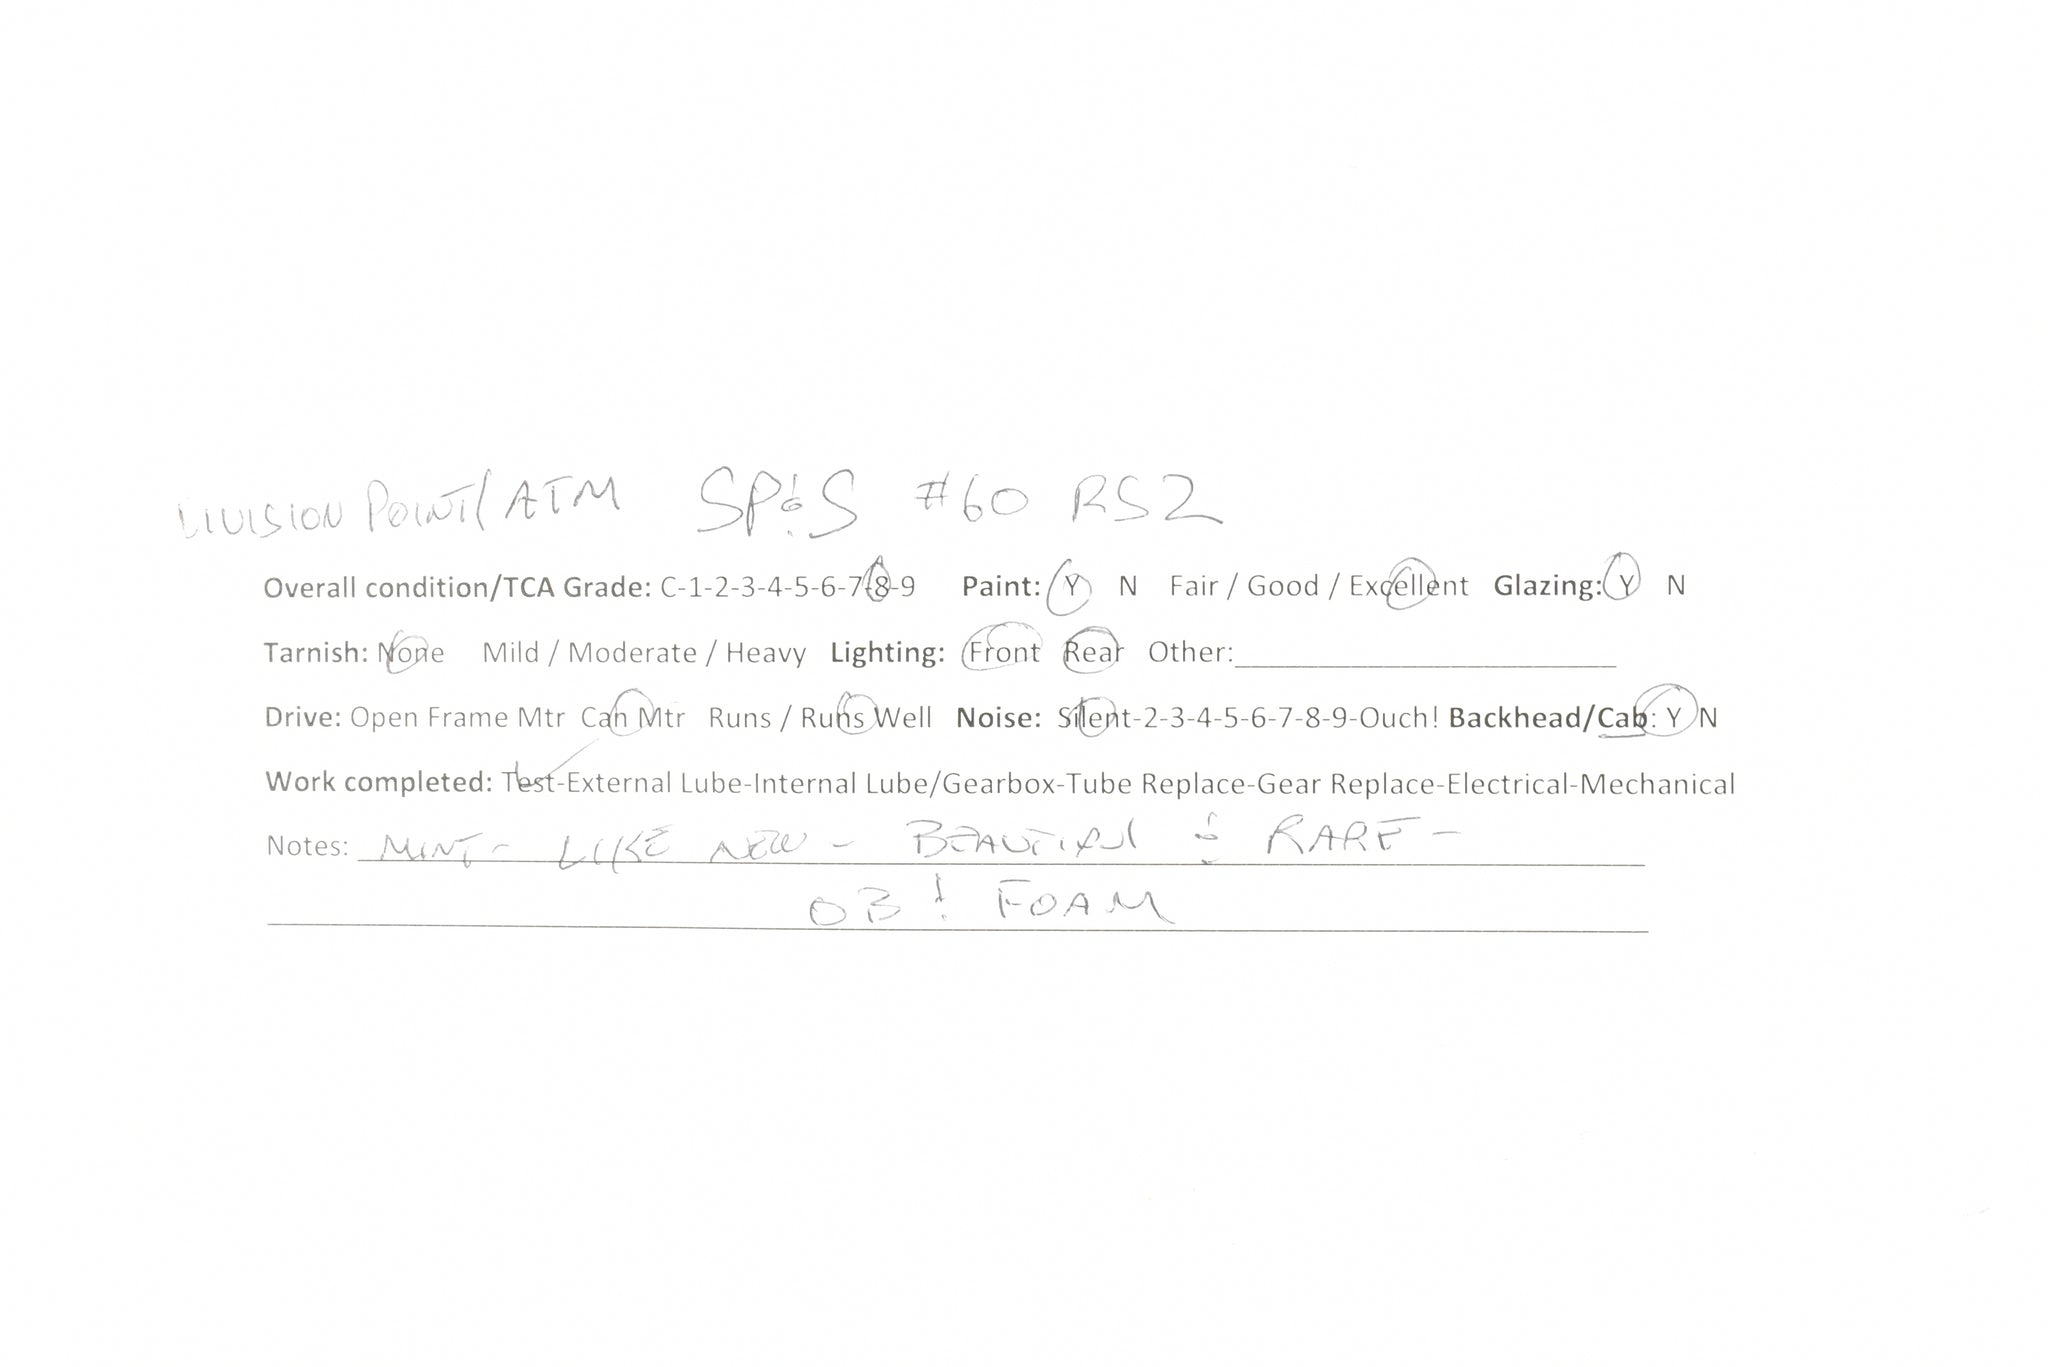 DIVISION POINT/ATM SP&S #60 RS2
Overall condition/TCA Grade: C-1-2-3-4-5-6-7-8-9 Paint: Y N Fair / Good / Excellent Glazing: Y N
Tarnish: None Mild / Moderate / Heavy Lighting: Front Rear Other:
Drive: Open Frame Mtr Can Mtr Runs / Runs Well Noise: Silent-2-3-4-5-6-7-8-9-Ouch! Backhead/Cab: Y N
Work completed: Test-External Lube-Internal Lube/Gearbox-Tube Replace-Gear Replace-Electrical-Mechanical
Notes: MINT - LIKE NEW - BEAUTIFUL & RARE -
OB & FOAM